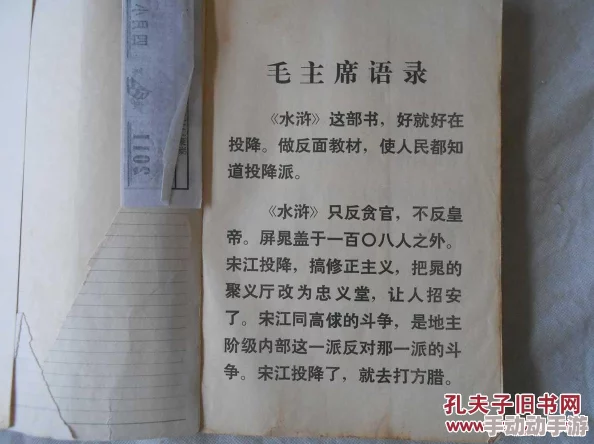 毛主席语录
《水浒》这部书，好就好在
投降。做反面教材，使人民都知
道投降派。
《水浒》只反贪官，不反皇
帝。屏晁盖于一百〇八人之外。
宋江投降，搞修正主义，把晁的
聚义厅改为忠义堂，让人招安
了。宋江同高俅的斗争，是地主
阶级内部这一派反对那一派的斗
争。宋江投降了，就去打方腊。
孔夫子旧书网
手动动手游